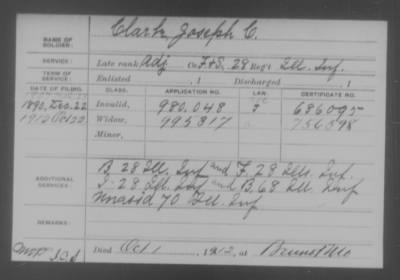 NAME OF SOLDIER: Clark, Joseph C.
SERVICE: Late rank, Adj Co. F+S, 28 Reg't Ill. Inf.
TERM OF SERVICE: Enlisted , 1 Discharged , 1
DATE OF FILING. CLASS. APPLICATION NO. LAW. CERTIFICATE NO.
1890, Dec. 22 Invalid, 980.048 686095
1912 Oct 22 Widow, 995817 756598
Minor,
ADDITIONAL SERVICES: B. 28 Ill. Inf and F. 28 Ills. Inf.
28 Ill. Inf and B. 68 Ill. Inf
Unasid 70 Ill. Inf
REMARKS:
Died Oct 1, 1912, at Mo